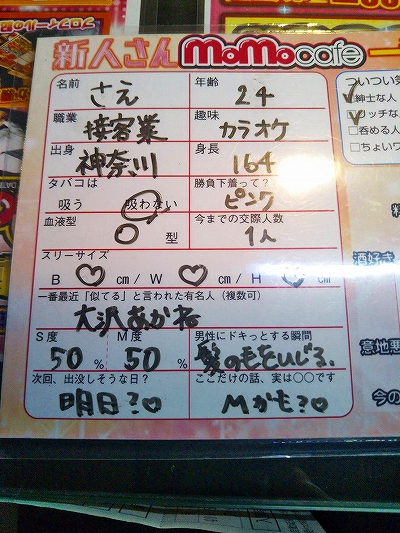 プロフィールの館
新人さん MoMo cafe
名前 さえ 年齢 24
職業 接客業 趣味 カラオケ
出身 神奈川 身長 164
タバコは 吸う 吸わない 勝負下着って? ピンク
血液型 ○型 今までの交際人数 1人
スリーサイズ
B ♡ cm / W ♡ cm / H ♡ cm
一番最近「似てる」と言われた有名人(複数可)
大沢あかね
S度 50% M度 50% 男性にドキっとする瞬間 髪の毛をいじる。
次回、出没しそうな日? 明日?♡ ここだけの話、実は○○です Mかも?♡
ついつい
紳士な人
ッチな
呑める人
ちょいワ
酒好き
意地悪
今の